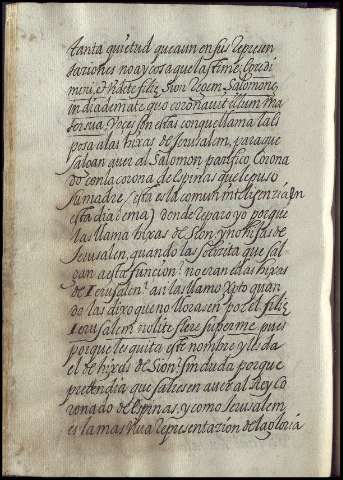 tanta quietud que aun en sus represen
taciones no ay cosa que lastime. Egredi
mini, et videte filie Sion Regem Salomone,
in diademate quo coronauit illum ma
ter sua. Vozes son estas con que llama la es
posa a las hixas de Jerusalem, para que
salgan a ver al Salomon pacifico, Corona
do con la corona de espinas que le puso
su madre (esta es la comun intelligenzia en
esta dia: ema) donde reparo yo porque
las llama hixas de Sion, y no hixas de
Jerusalen, quando las solizita que sal
gan a esta funcion? no eran ellas hixas
de Ierusalen? asi las llamo Xpto quan
do las dixo que no llorasen por el filie
Ierusalem nolite flere super me pues
porque les quita este nombre y les da
el de hixas de Sion? sin duda porque
pretendia que saliesen a ver al Rey Co
ronado de espinas, y como Jerusalem
es la mas viua representazion de la gloria